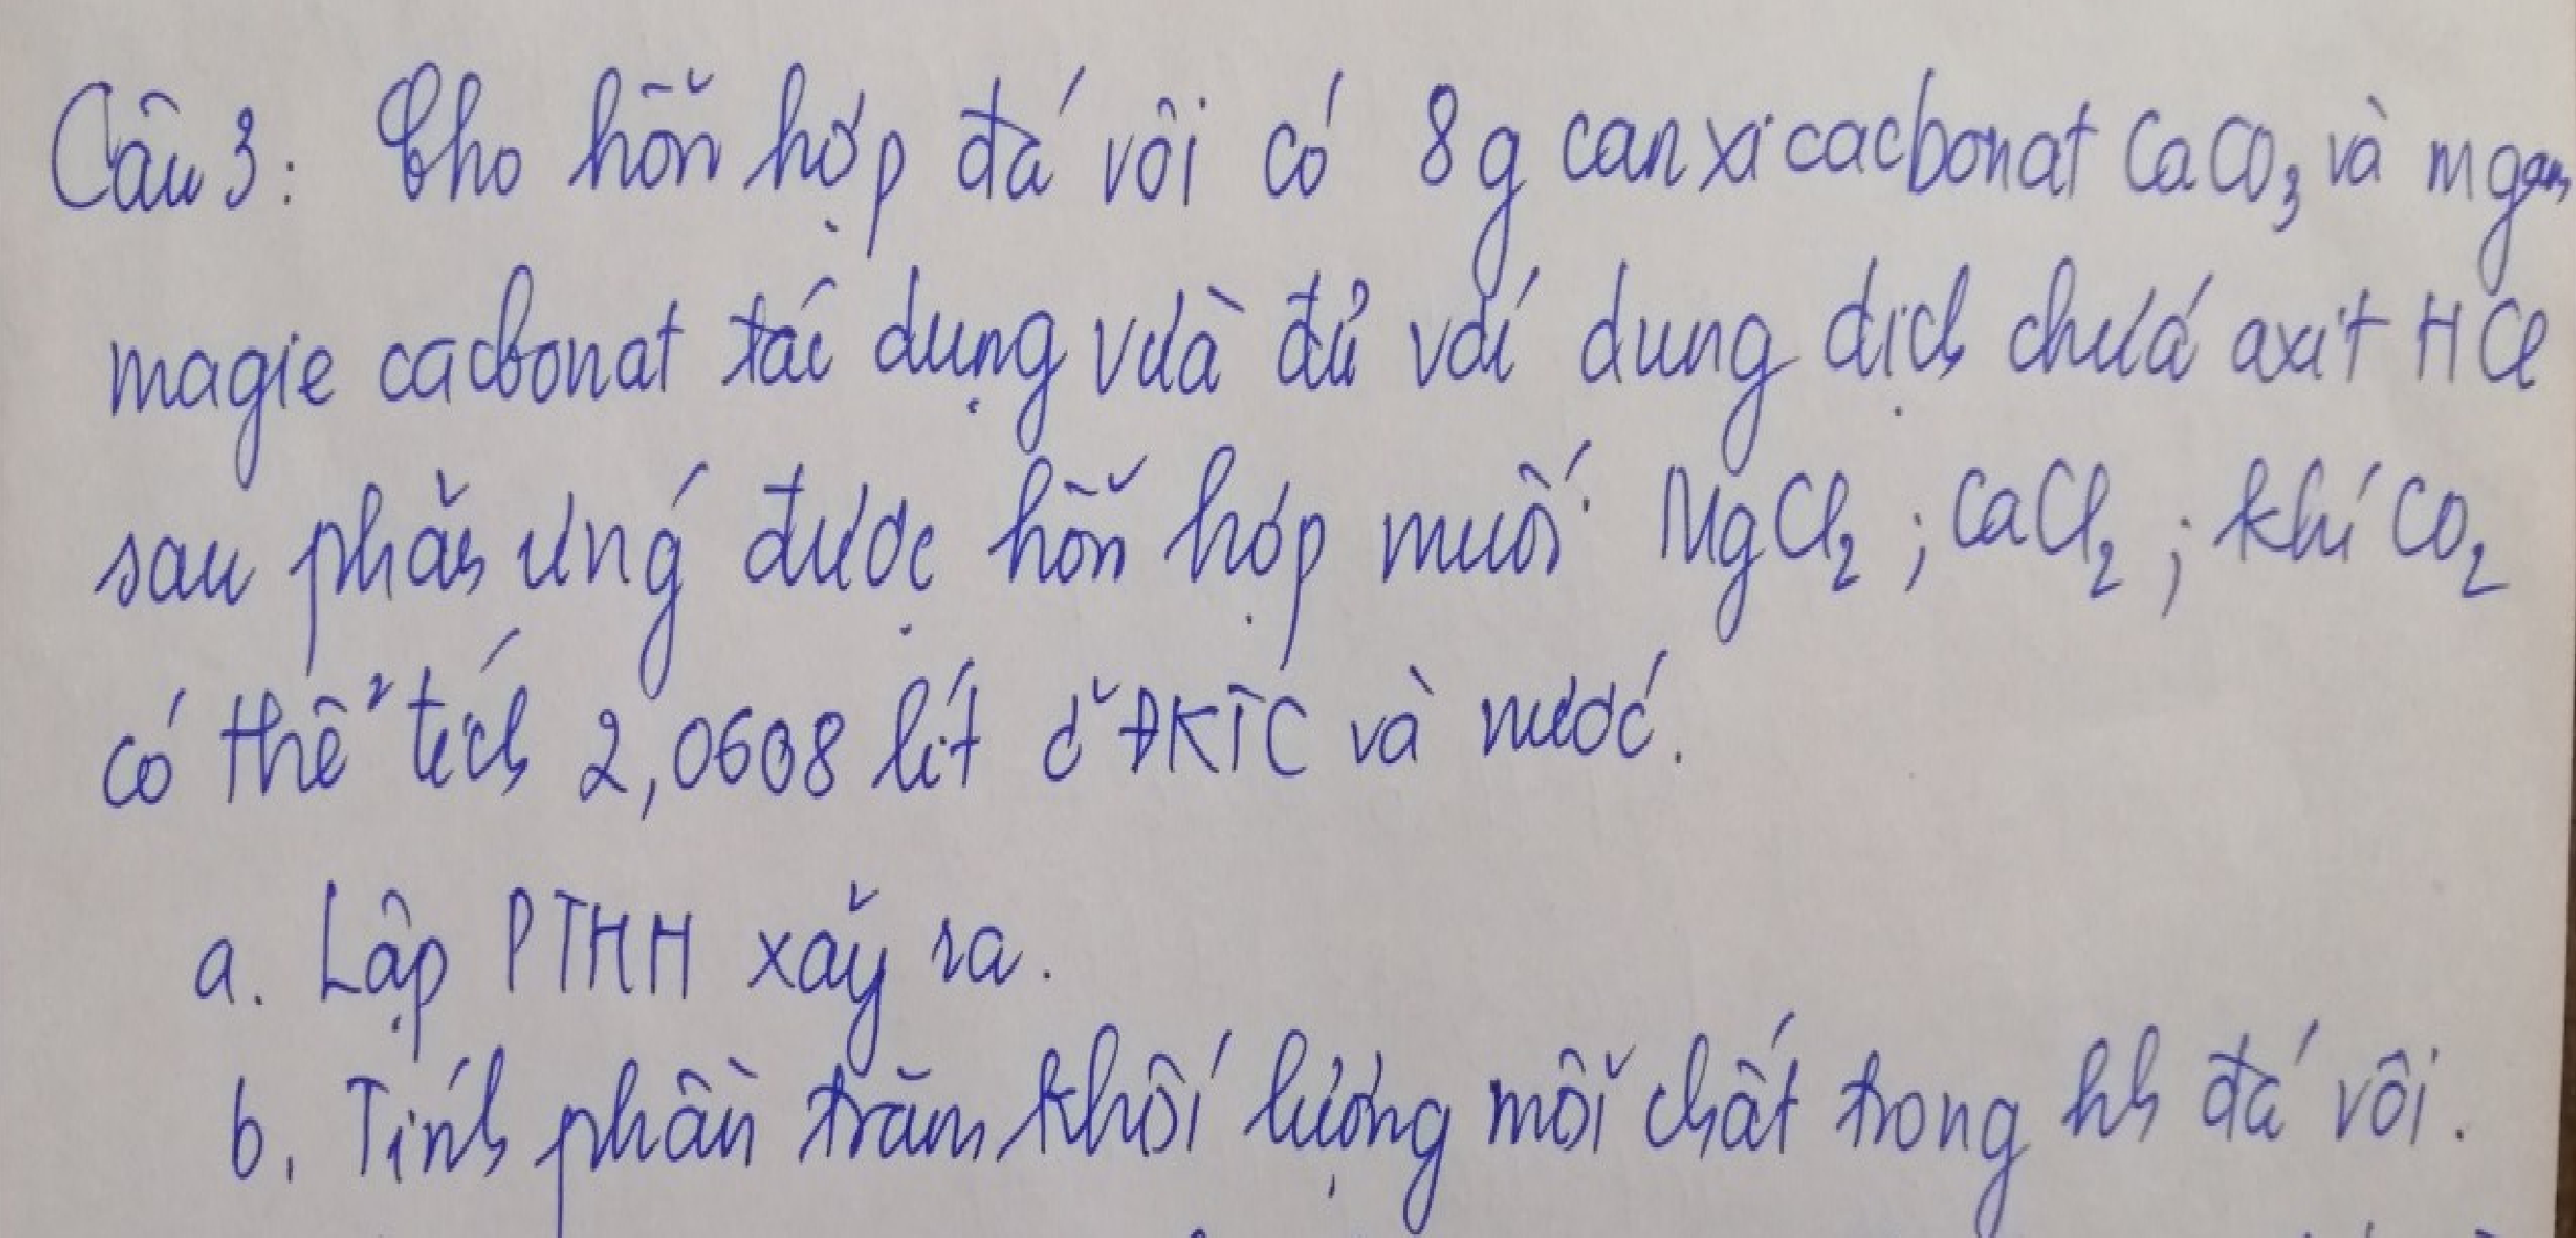 Câu 3: Cho hỗn hợp đá vôi có 8g canxicacbonat CaCO₃ và m gam
magie cacbonat tác dụng vừa đủ với dung dịch chứa axit HCl
sau phản ứng được hỗn hợp muối MgCl₂ ; CaCl₂ ; khí CO₂
có thể tích 2,0608 lít ở ĐKTC và nước.
a. Lập PTHH xảy ra.
b. Tính phần trăm khối lượng mỗi chất trong hh đá vôi.